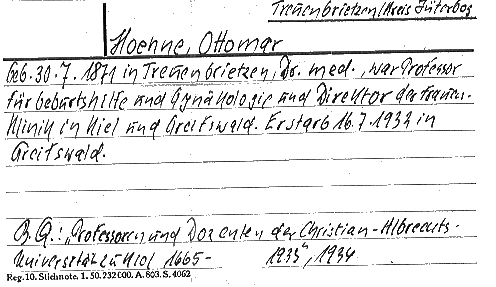 Treuenbrietzen/Kreis Jüterbog
Hoehne, Ottomar
Geb. 30.7.1871 in Treuenbrietzen, Dr. med., war Professor
für Geburtshilfe und Gynäkologie und Direktor der Frauen-
klinik in Kiel und Greifswald. Er starb 16.7.1932 in
Greifswald.
B.Q.: „Professoren und Dozenten der Christian-Albrechts-
Universität zu Kiel 1665- 1933", 1934
Reg. 10. Stichnote. 1. 50. 232 000. A. 803. S. 4062